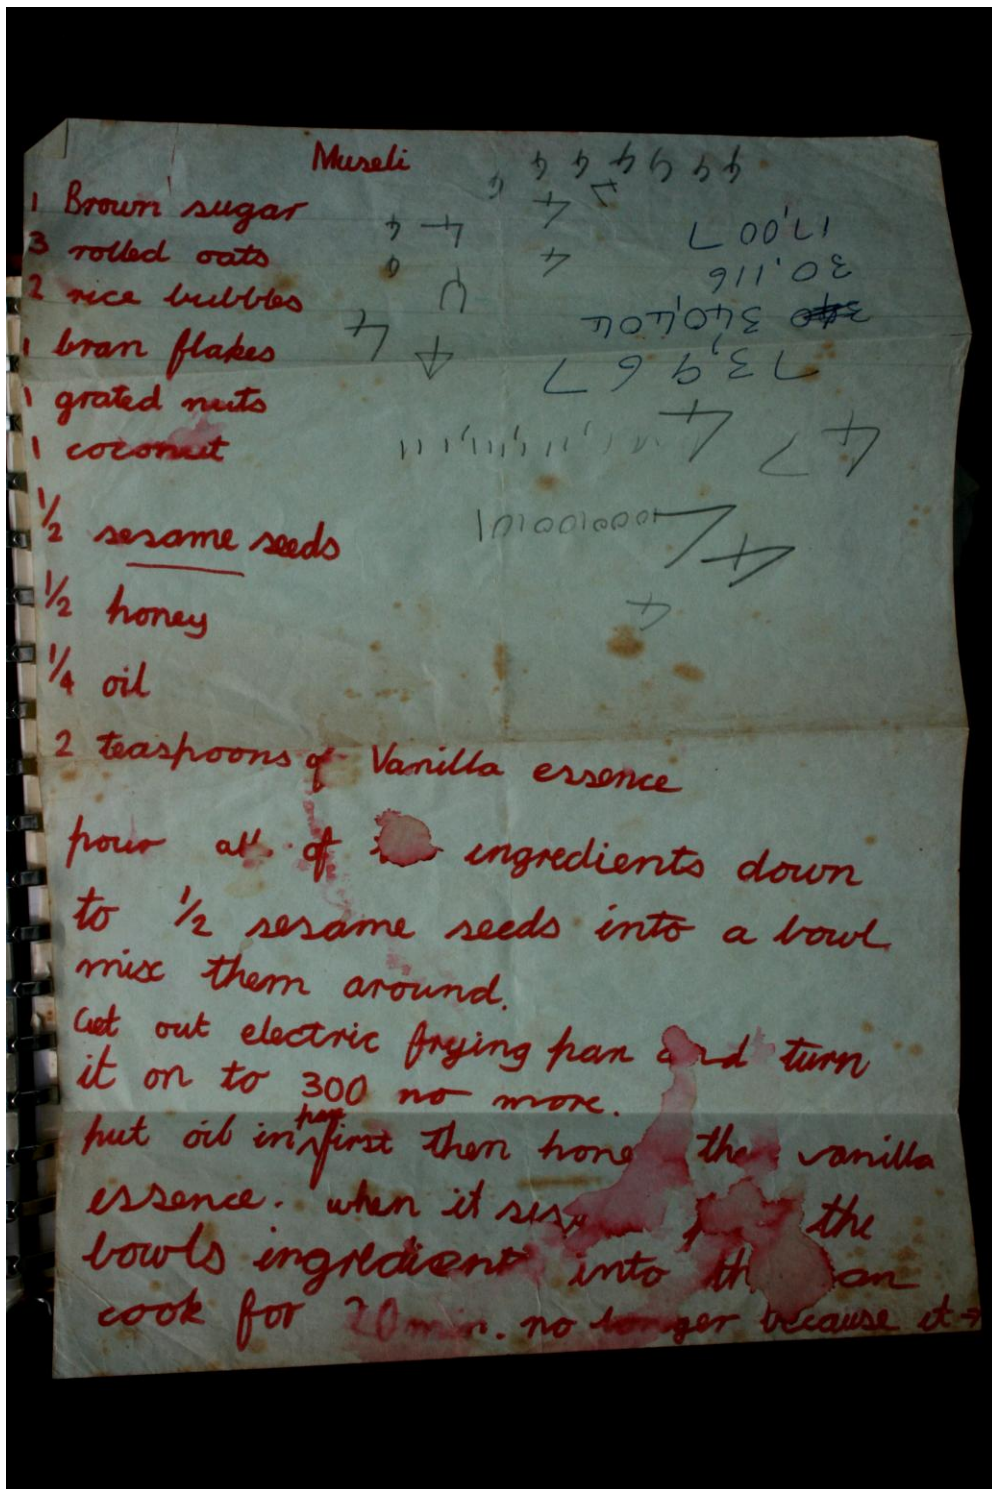 Museli
1 Brown sugar
3 rolled oats
2 rice bubbles
1 bran flakes
1 grated nuts
1 coconut
1/2 sesame seeds
1/2 honey
1/4 oil
2 teaspoons of Vanilla essence
pour all of ingredients down
to 1/2 sesame seeds into a bowl
mix them around.
Get out electric frying pan and turn
it on to 300 no more.
put oil in pan first then honey then vanilla
essence. when it the
bowls ingredient into the pan
cook for 20 min. no longer because it →
73,967
340,404
30,116
17,007